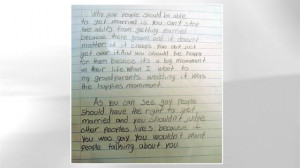 Why gay people should be able
to get married is you can't stop
two adults from getting married
because there grown and it doesn't
matter if it creeps you out just
get over it. And you should be happy
for them because its a big momment
in their life. When I went to
my grandparents wedding it was
the happies momment.
As you can see gay people
should have the right to get
married and you shouldn't judge
other peoples lives because if
you was gay you wouldn't want
people talking about you